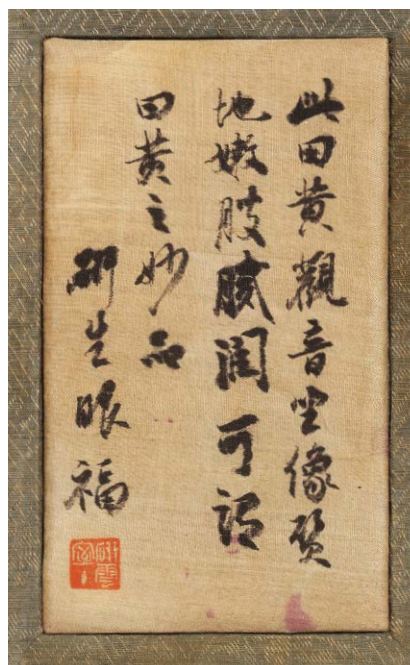 此田黄觀音坐像質
地嫩肢膩潤可謂
田黄之妙品
研生眼福